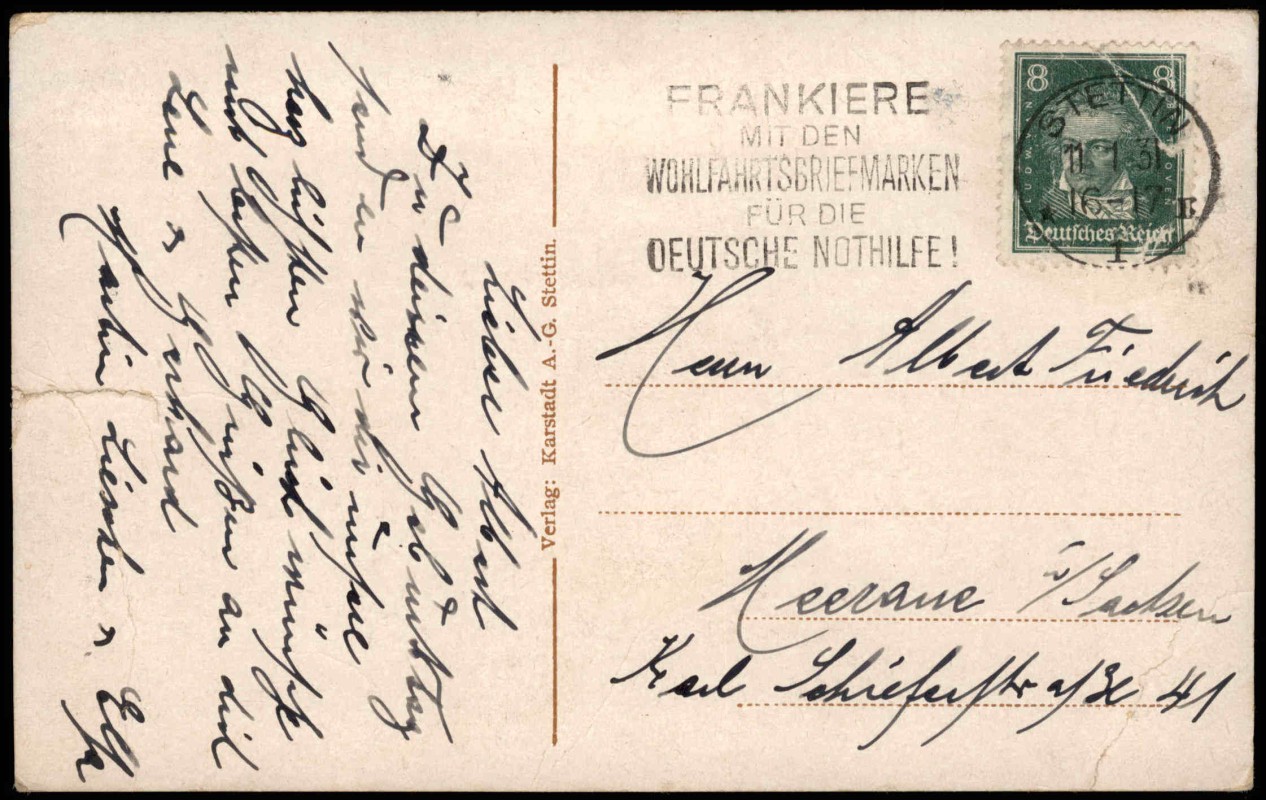 Lieber Albert
Zu deinem Geburtstag
senden wir dir unsere
herzlichsten Glückwünsche
und besten Grüßen an dich
Lene u. Gerhard
Martin Lieschen u. Elfr
Verlag: Karstadt A.-G. Stettin.
FRANKIERE
MIT DEN
WOHLFAHRTSBRIEFMARKEN
FÜR DIE
DEUTSCHE NOTHILFE!
8 8
Deutsches Reich
STETTIN
11 1 31
16-17
1
Herrn Albert Friedrich
Meerane i/Sachsen
Karl Schieferstr 41